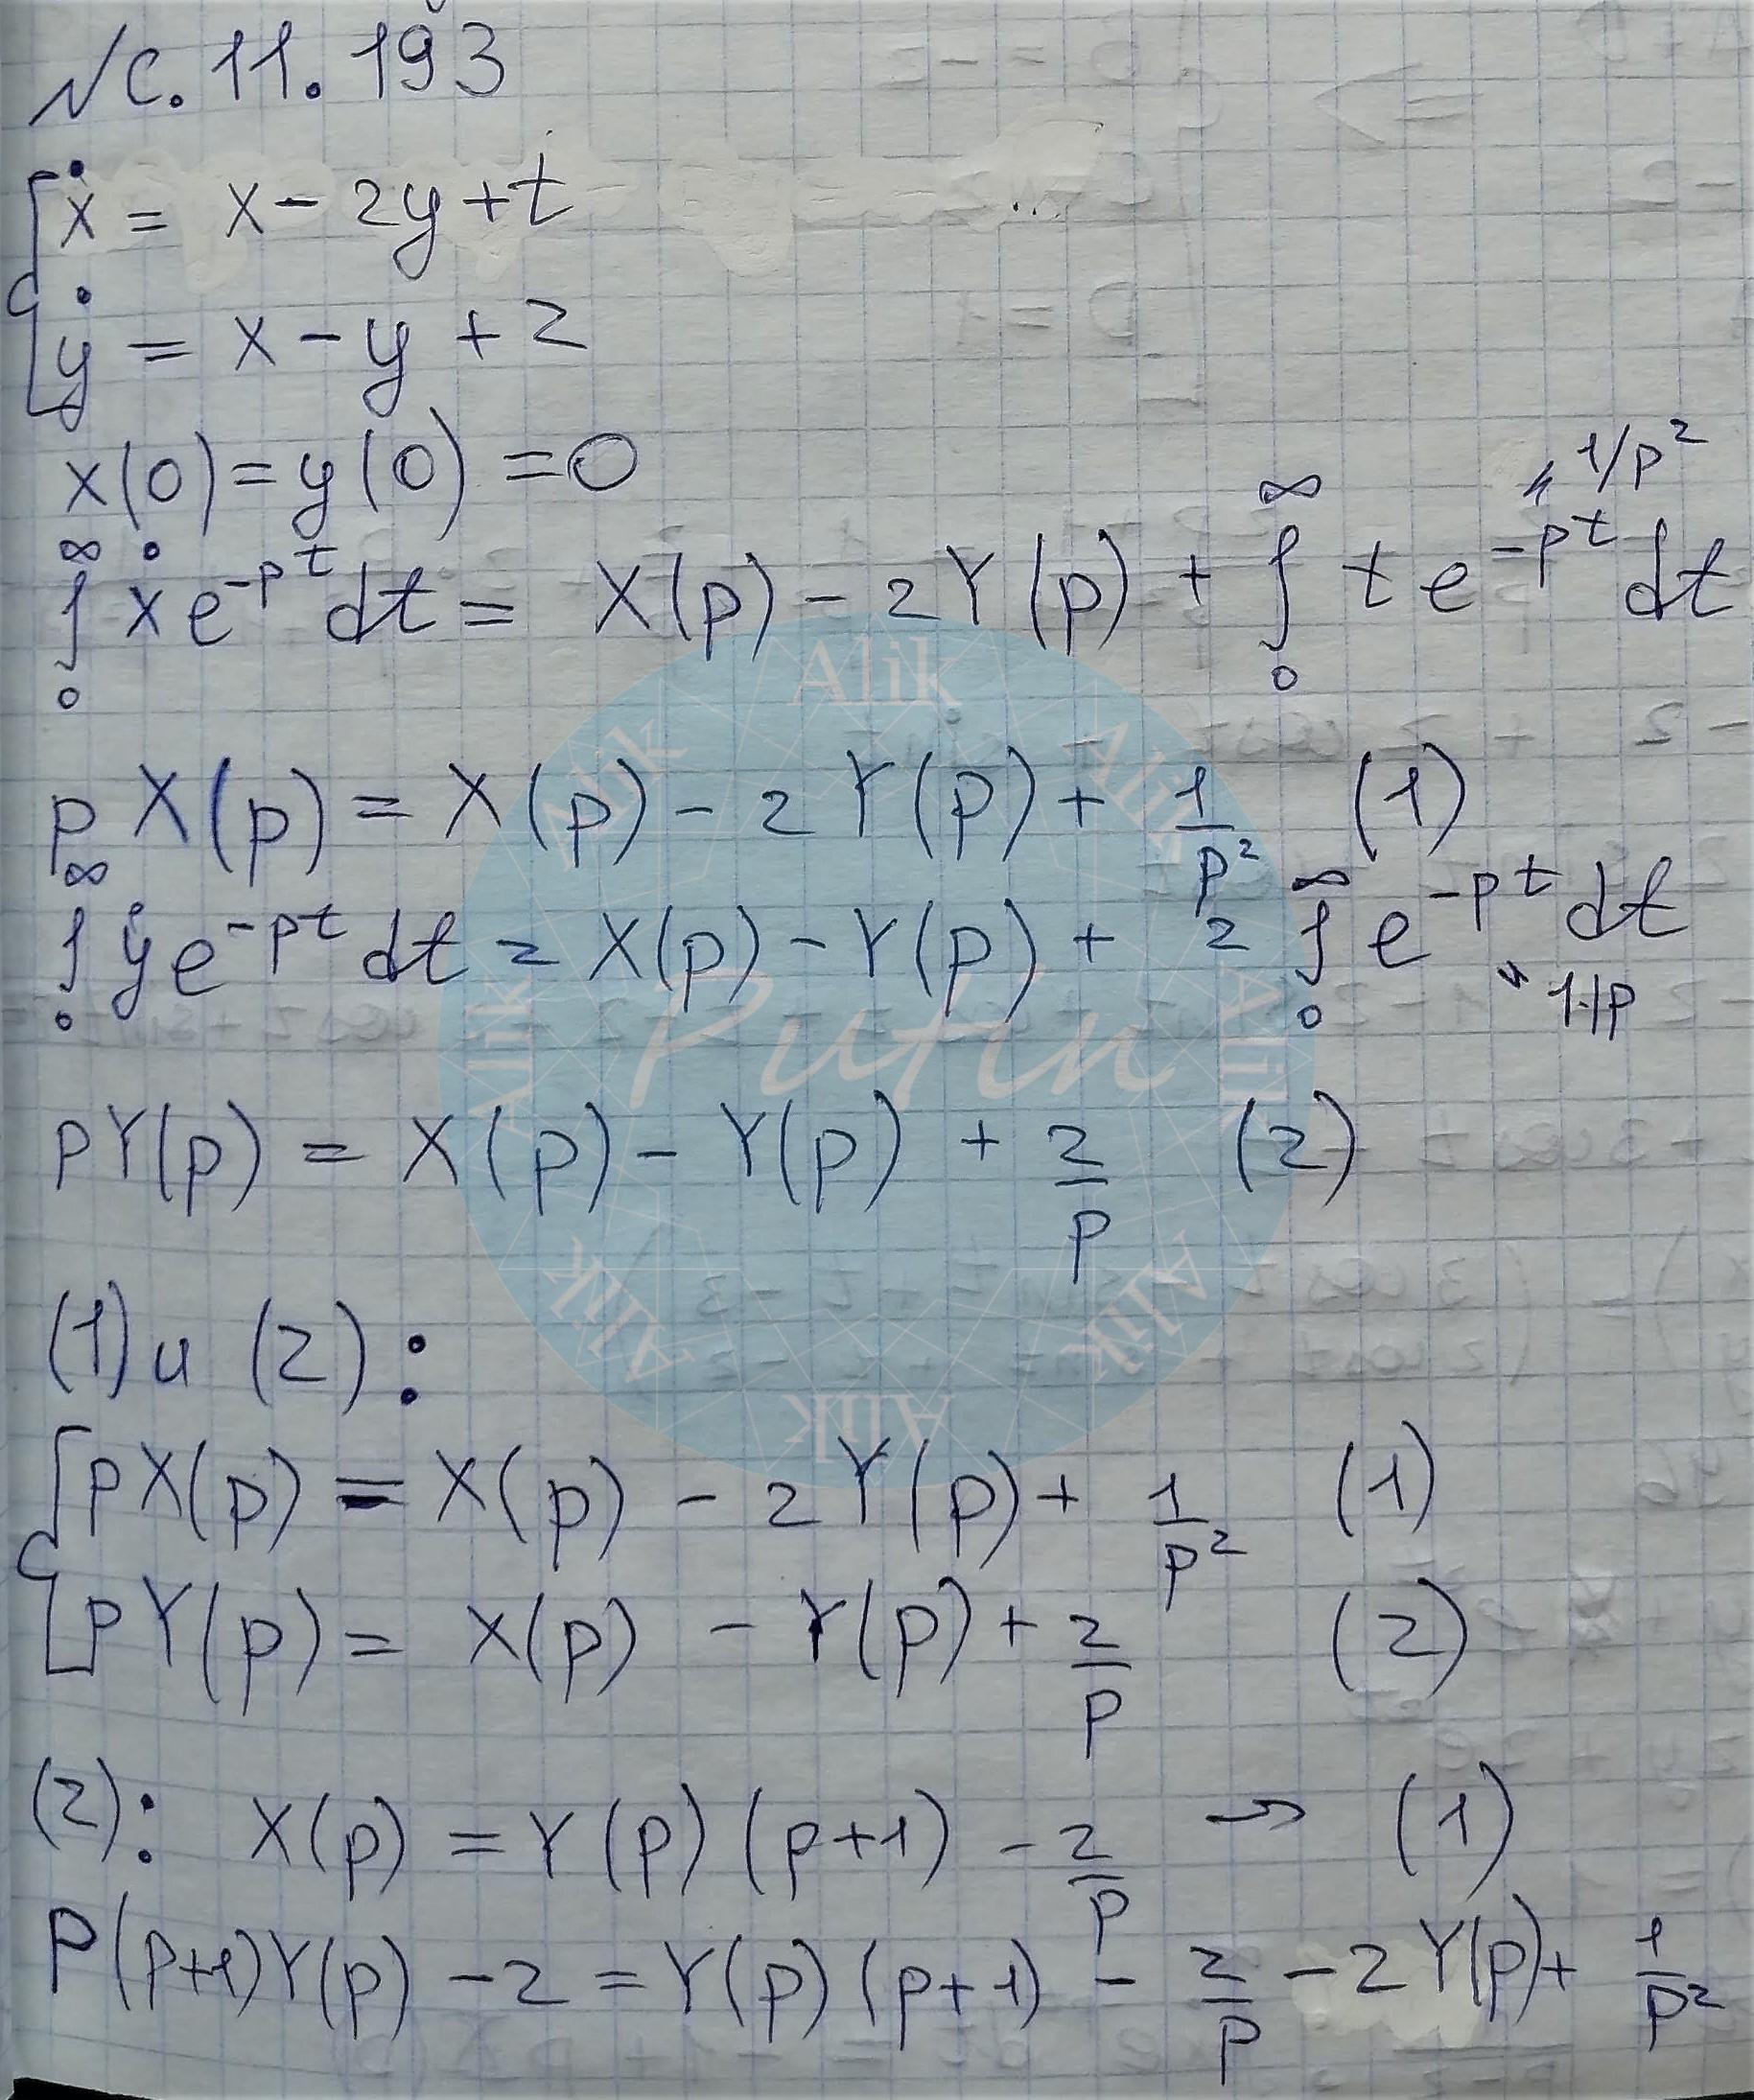 № С. 11. 193
ẋ = x - 2y + t
ẏ = x - y + 2
x(0) = y(0) = 0
∫₀^∞ ẋ e^{-pt} dt = X(p) - 2Y(p) + ∫₀^∞ t e^{-pt} dt " 1/p²
p X(p) = X(p) - 2Y(p) + 1/p² (1)
∫₀^∞ ẏ e^{-pt} dt = X(p) - Y(p) + 2 ∫₀^∞ e^{-pt} dt " 1/p
pY(p) = X(p) - Y(p) + 2/p (2)
(1) и (2):
pX(p) = X(p) - 2Y(p) + 1/p² (1)
pY(p) = X(p) - Y(p) + 2/p (2)
(2): X(p) = Y(p)(p+1) - 2/p → (1)
P(p+1)Y(p) - 2 = Y(p)(p+1) - 2/p - 2Y(p) + 1/p²
Alik
Alik
Alik
Alik
Alik
Alik
Alik
Alik
Putin